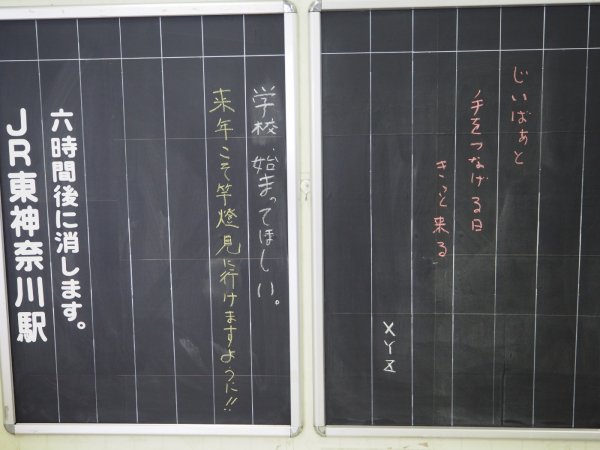 じいばあと
手をつなげる日
きっと来る
XYZ
学校、始まってほしい。
来年こそ竿燈見に行けますように!!
六時間後に消します。
JR東神奈川駅